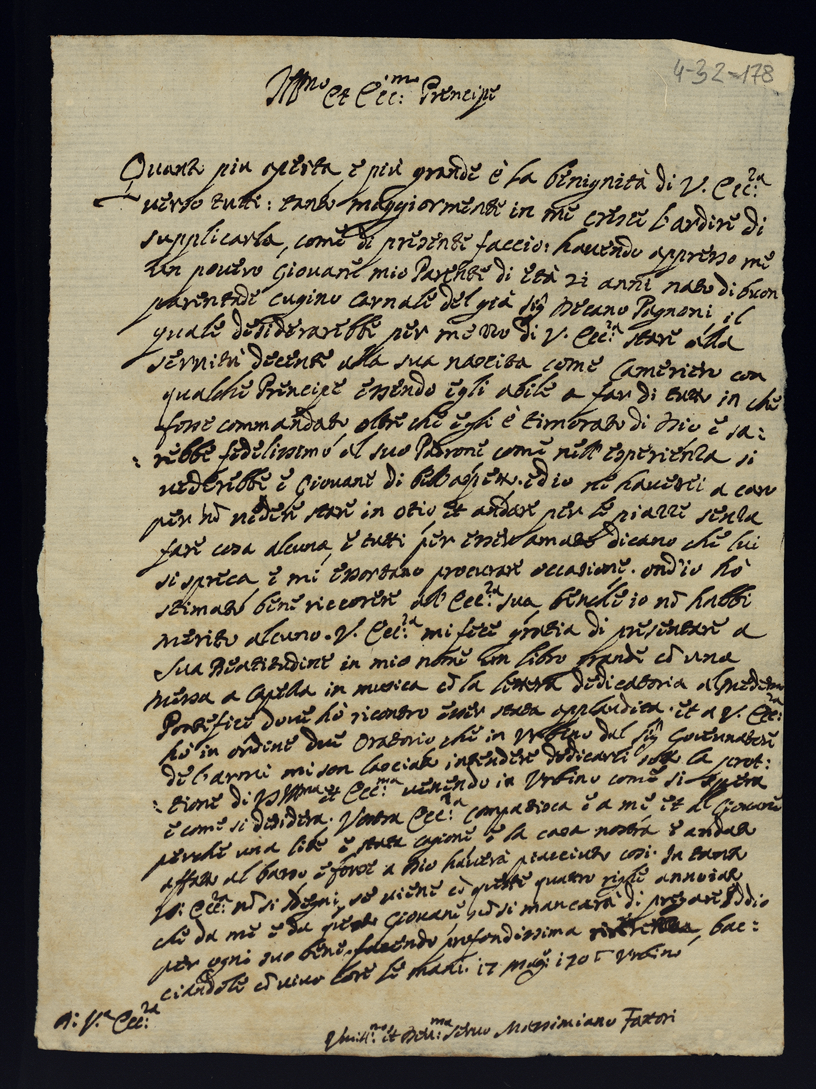 4-32-178
Ill.mo et Ecc:mo Prencipe
Quanto piu aperta e più grande è la benignità di V. Ecc:za
verso tutti: tanto maggiormente in me cresce l'ardire di
supplicarla, come di presente faccio: havendo appresso me
un povero Giovane mio Parente di età 21 anni nato di buon
parentade cugino carnale del già Sig. Decano Pagnoni, il
quale desiderarebbe per mezzo di V. Ecc:za stare alla
servitù decente alla sua nascita come Cameriero con
qualche Prencipe essendo egli abile a far di tutto in che
fosse commandato oltre che egli è timorato di Dio e sa:
:rebbe fedelissimo al suo Padrone come nell'esperienza si
vederebbe è Giovane di bell'aspetto. ed io ne haverei a caro
per nõ vedere stare in otio et andare per le piazze senza
fare cosa alcuna, e tutti per esser amato dicano che lui
si spreca e mi essortano procurare occasione. ond'io hò
stimato bene riccorere all'Ecc:za sua, benche io nõ habbi
merito alcuno. V. Ecc:za mi fece gratia di presentare a
Sua Beatitudine in mio nome un libro grande cõ una
messa a Capella in musica cõ la lettera dedicatoria al medemo
Pontefice dove hò ricontro esser stata applaudita. et a V. Ecc:za
hò in ordine due Oratorio che in Urbino dal Sig. Governatore
de larmi mi son lasciato intendere dedicarli sotto la prot:
:tione di V. Ill.ma et Ecc:ma venendo in Urbino come si spera
e come si desidera. Vostra Ecc:za compatisca e a me et al Giovane
perche una lite è stata cagione e la casa nostra è andata
affatto al basso e forse a Dio haverà piacciuto cosi. In tanto
V: Ecc:za nõ si sdegni, se viene cõ queste quatro righe annoiata
che da me e da questo Giovane nõ si mancarà di pregare Iddio
per ogni suo bene, facendo profondissima riverenza, bac:
ciandole cõ vivo core le mani. 17 Mag: 1705 Urbino
Di V.a Ecc:za
Humil:mo et Dev:mo Servo Massimiano Fattori